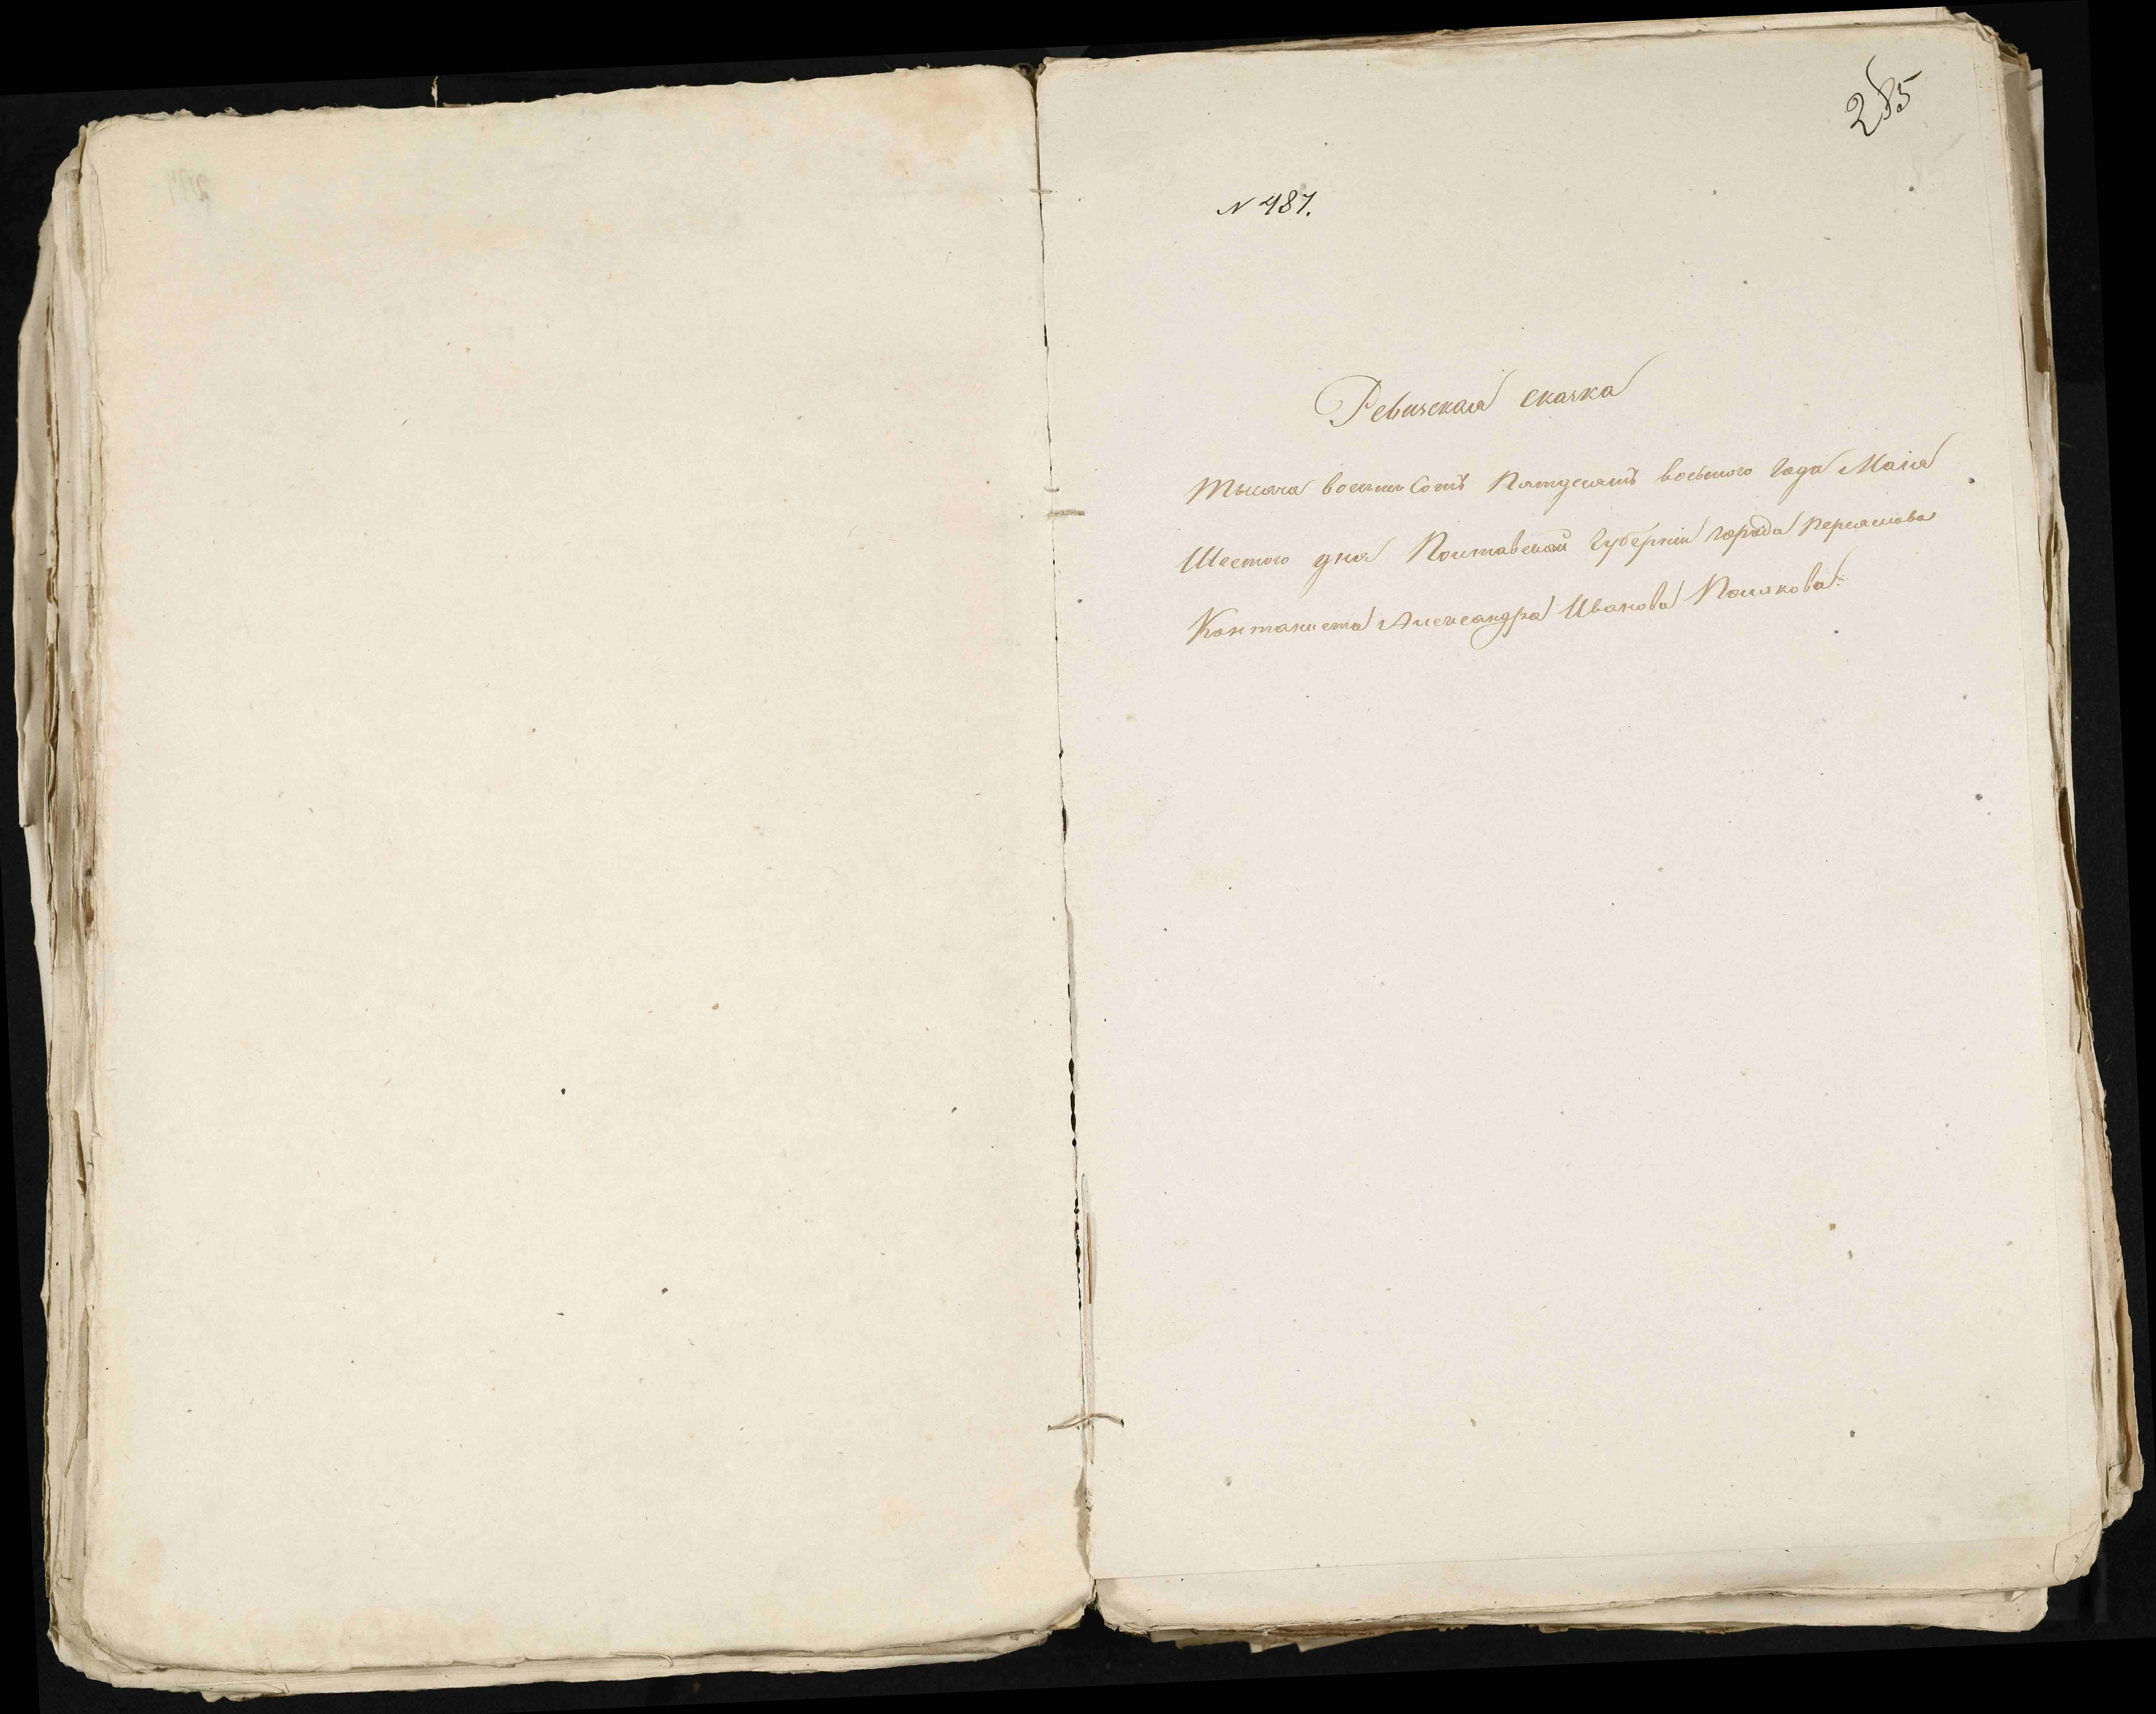 285
N 487.
Ревизская сказка
Тысяча восемь Сотъ Пятдесятъ восьмого Года Маія
Шестого дня Полтавской Губерніи города Переяслова
Кантаниста Александра Иванова Полякова.